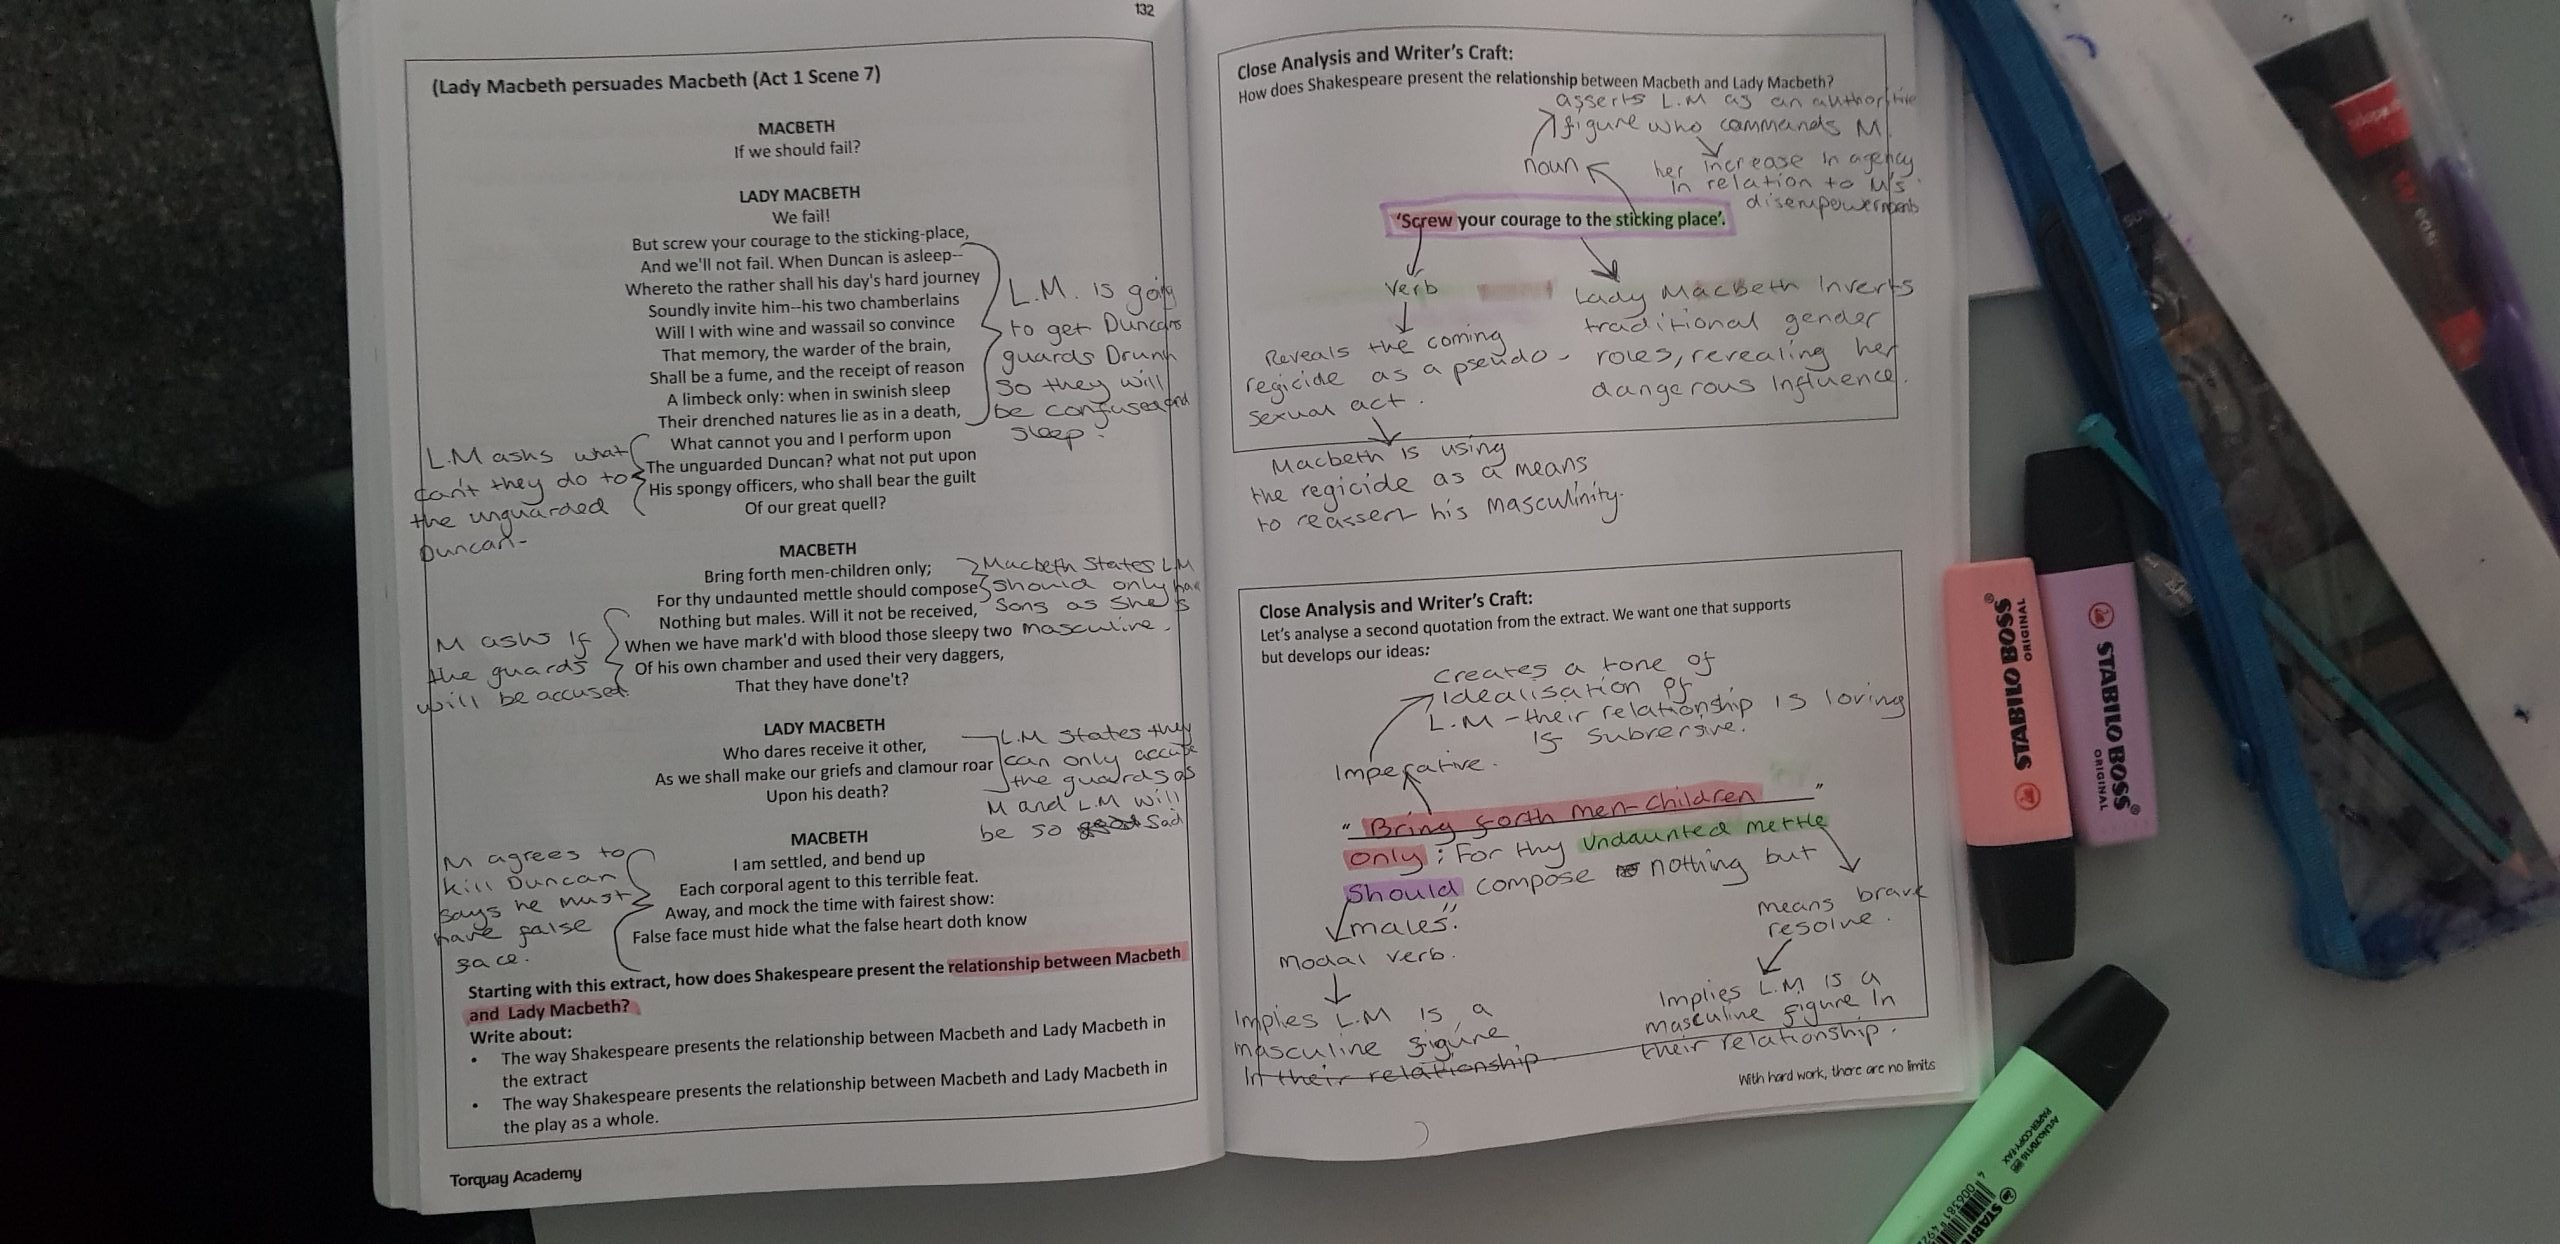 132
(Lady Macbeth persuades Macbeth (Act 1 Scene 7)
MACBETH
If we should fail?
LADY MACBETH
We fail!
But screw your courage to the sticking-place,
And we'll not fail. When Duncan is asleep--
Whereto the rather shall his day's hard journey
Soundly invite him--his two chamberlains
Will I with wine and wassail so convince
That memory, the warder of the brain,
Shall be a fume, and the receipt of reason
A limbeck only: when in swinish sleep
Their drenched natures lie as in a death,
What cannot you and I perform upon
The unguarded Duncan? what not put upon
His spongy officers, who shall bear the guilt
Of our great quell?
L.M. is going
to get Duncans
guards Drunk
so they will
be confused and
sleep.
L.M asks what
can't they do to
the unguarded
Duncan-
MACBETH
Bring forth men-children only;
For thy undaunted mettle should compose
Nothing but males. Will it not be received,
When we have mark'd with blood those sleepy two
Of his own chamber and used their very daggers,
That they have done't?
Macbeth States LM
should only have
sons as she's
masculine.
M asks if
the guards
will be accused.
LADY MACBETH
Who dares receive it other,
As we shall make our griefs and clamour roar
Upon his death?
L.M states they
can only accuse
the guards as
M and L.M will
be so sad
MACBETH
I am settled, and bend up
Each corporal agent to this terrible feat.
Away, and mock the time with fairest show:
False face must hide what the false heart doth know
M agrees to
kill Duncan
says he must
have false
face.
Starting with this extract, how does Shakespeare present the relationship between Macbeth
and Lady Macbeth?
Write about:
• The way Shakespeare presents the relationship between Macbeth and Lady Macbeth in
the extract
• The way Shakespeare presents the relationship between Macbeth and Lady Macbeth in
the play as a whole.
Torquay Academy
Close Analysis and Writer's Craft:
How does Shakespeare present the relationship between Macbeth and Lady Macbeth?
asserts L.M as an authoritive
figure who commands M.
noun
her increase in agency
in relation to M's
disempowerments
'Screw your courage to the sticking place'.
verb
Reveals the coming
regicide as a pseudo-
sexual act.
Lady Macbeth Inverts
traditional gender
roles, revealing her
dangerous influence.
Macbeth is using
the regicide as a means
to reassert his masculinity.
Close Analysis and Writer's Craft:
Let's analyse a second quotation from the extract. We want one that supports
but develops our ideas:
creates a tone of
idealisation of
L.M - their relationship is loving
is subversive.
Imperative.
" Bring forth men-children "
only; For thy undaunted mettle
should compose nothing but
males."
Modal verb.
Implies L.M is a
masculine figure
in their relationship
means brave
resolve.
Implies L.M is a
masculine figure in
their relationship.
With hard work, there are no limits
STABILO BOSS®
ORIGINAL
STABILO BOSS®
ORIGINAL